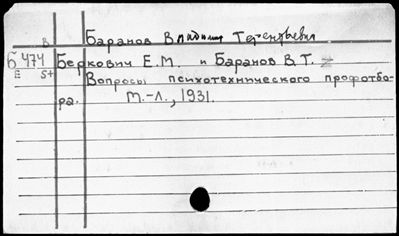 В Баранов Владимир Терентьевич
Б 474 Беркович Е.М. и Баранов В.Т.
Е S+ Вопросы психотехнического профотбо-
ра. М.-Л., 1931.